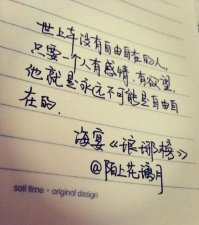 世上本没有自由自在的人,
只要一个人有感情,有欲望,
他就是永远不可能是自由自
在的.
海宴《琅琊榜》
@陌上花满月
sati time · original design